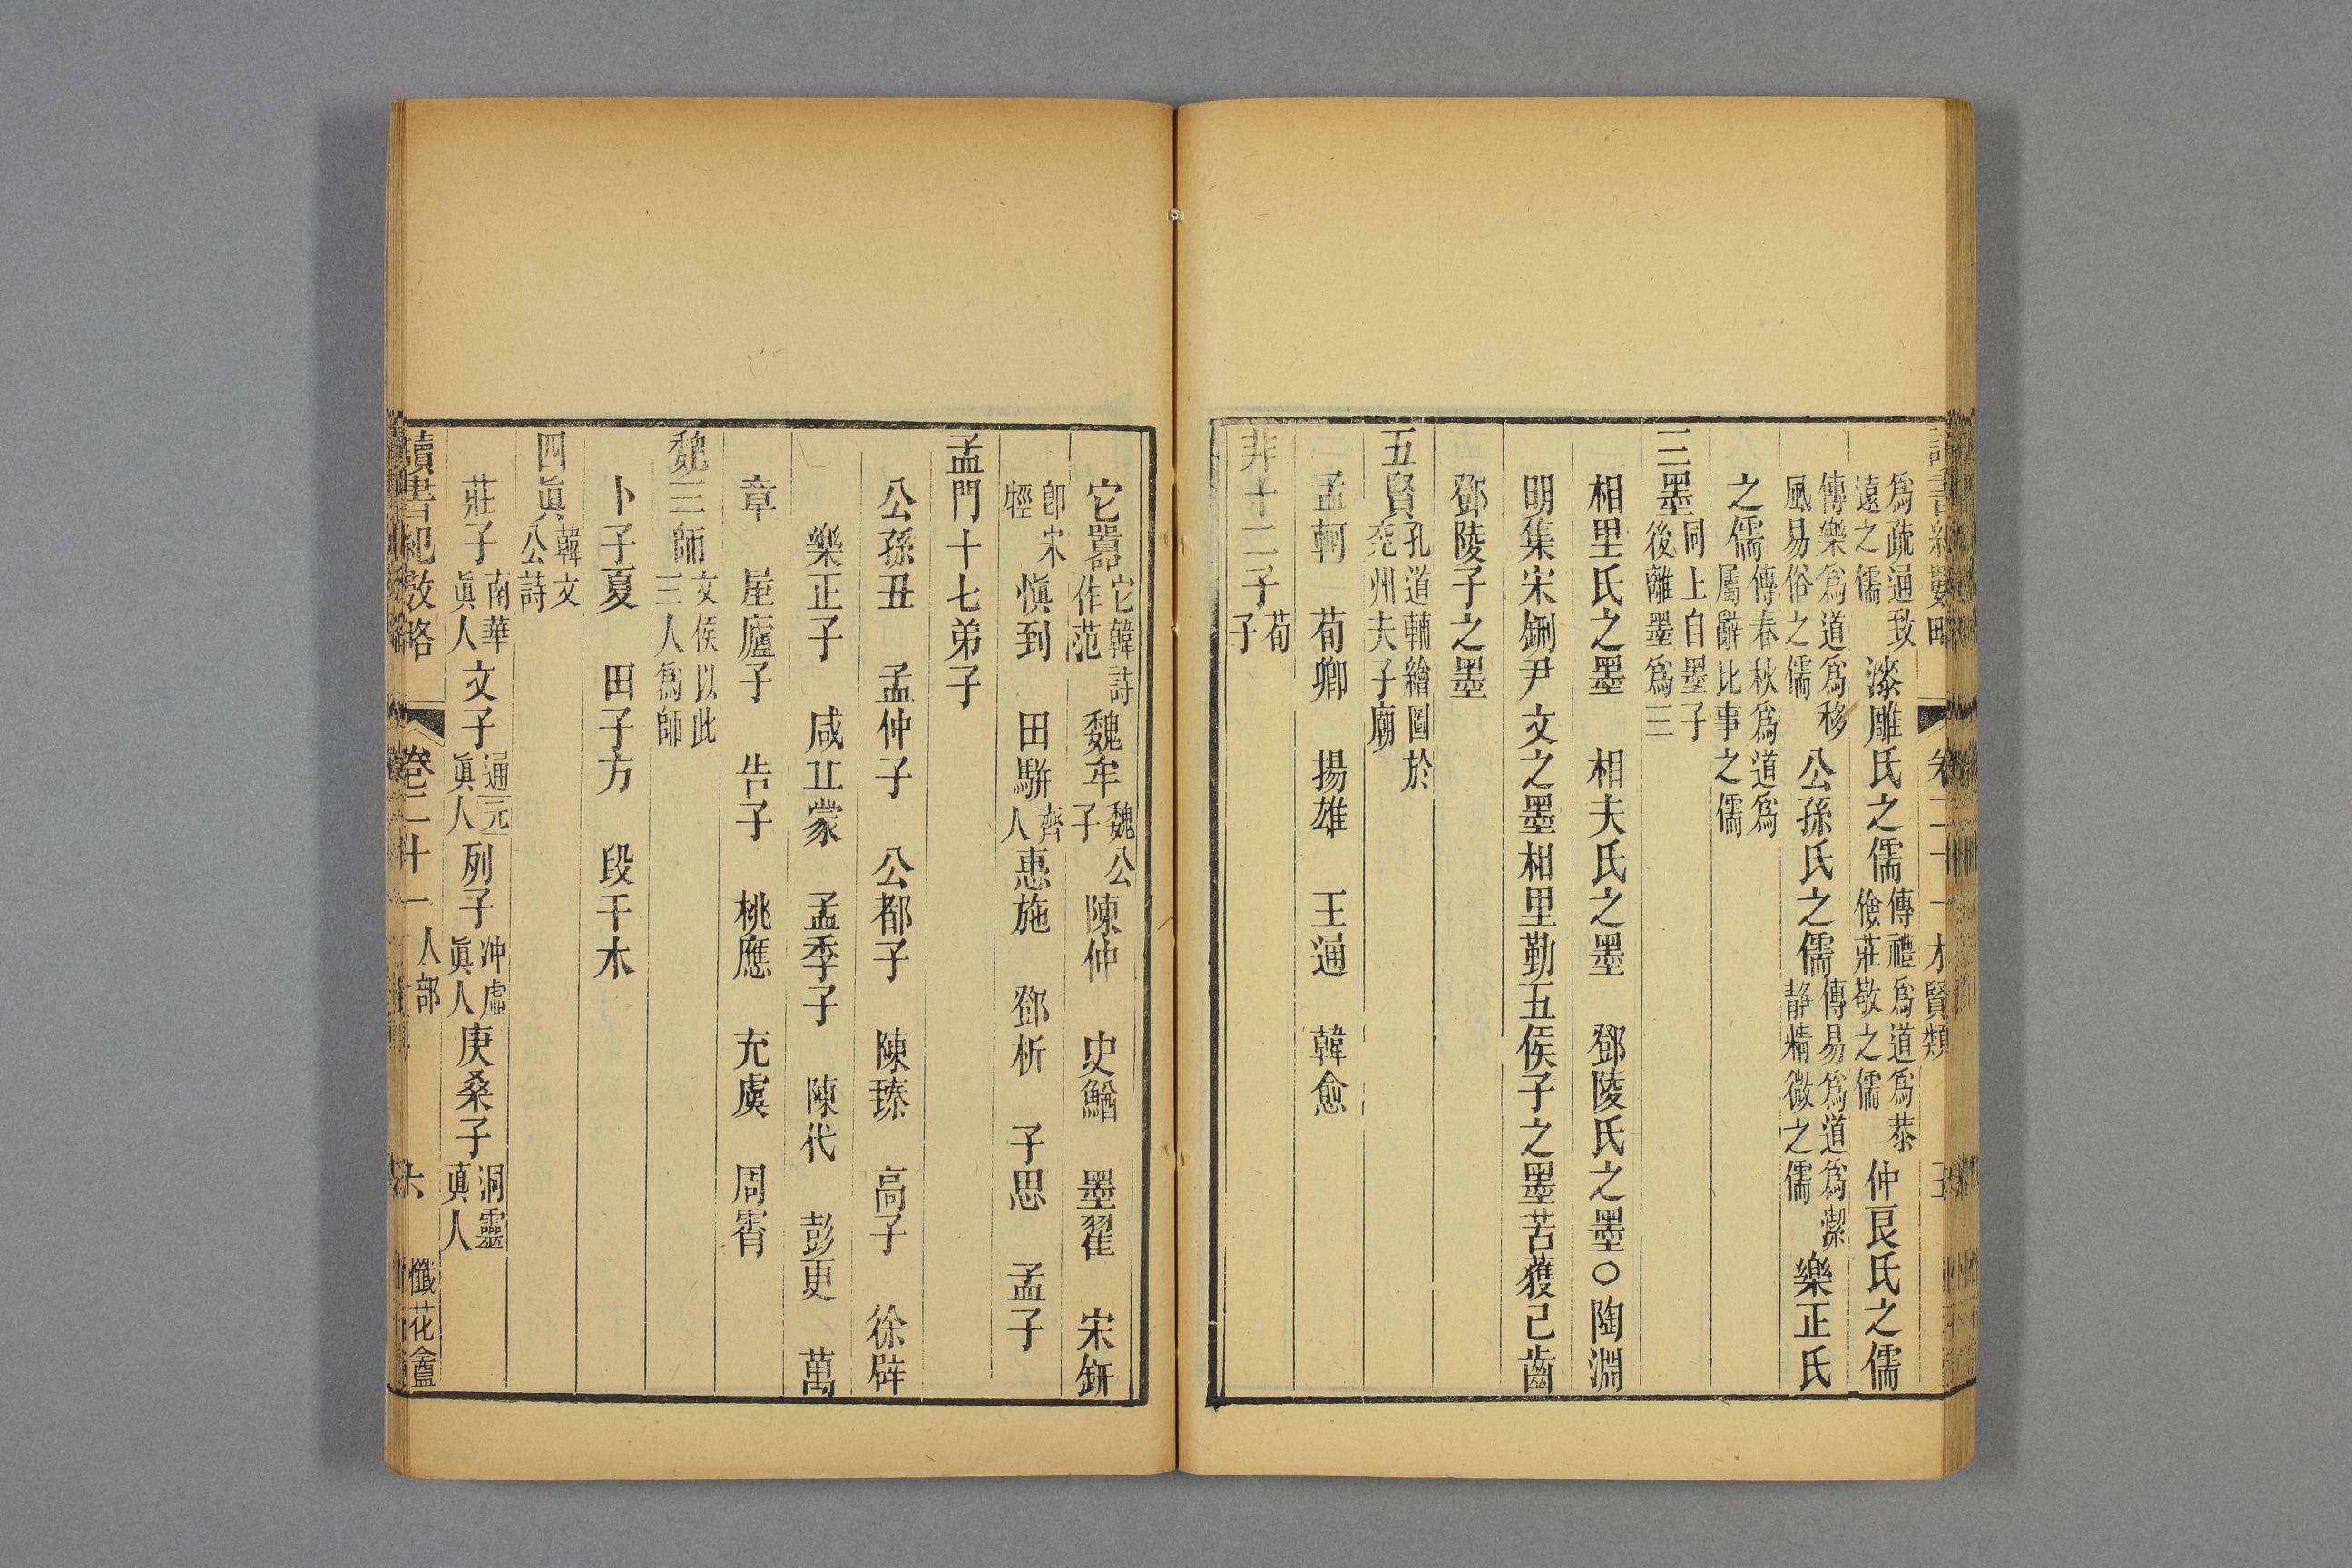 讀書紀數略 卷二十一 人 賢類 五
爲疏通致遠之儒 漆雕氏之儒 傳禮爲道爲恭儉莊敬之儒 仲良氏之儒
傳樂爲道爲移風易俗之儒 公孫氏之儒 傳易爲道爲潔靜精微之儒 樂正氏
之儒 傳春秋爲道爲屬辭比事之儒
三墨 同上自墨子後離墨爲三
相里氏之墨 相夫氏之墨 鄧陵氏之墨○陶淵
明集宋鉶尹文之墨相里勤五侯子之墨苦獲已齒
鄧陵子之墨
五賢 孔道輔繪圖於兖州夫子廟
孟軻 荀卿 揚雄 王通 韓愈
非十二子 荀子
它嚻 它韓詩作范 魏牟 魏公子 陳仲 史鰌 墨翟 宋鈃
卽宋牼 愼到 田駢 齊人 惠施 鄧析 子思 孟子
孟門十七弟子
公孫丑 孟仲子 公都子 陳臻 高子 徐辟
樂正子 咸丘蒙 孟季子 陳代 彭更 萬
章 屋廬子 告子 桃應 充虞 周霄
魏三師 文侯以此三人爲師
卜子夏 田子方 段干木
四眞 韓文公詩
莊子 南華眞人 文子 通元眞人 列子 冲虛眞人 庚桑子 洞靈眞人
讀書紀數略 卷二十一 人部 六 懺花盦